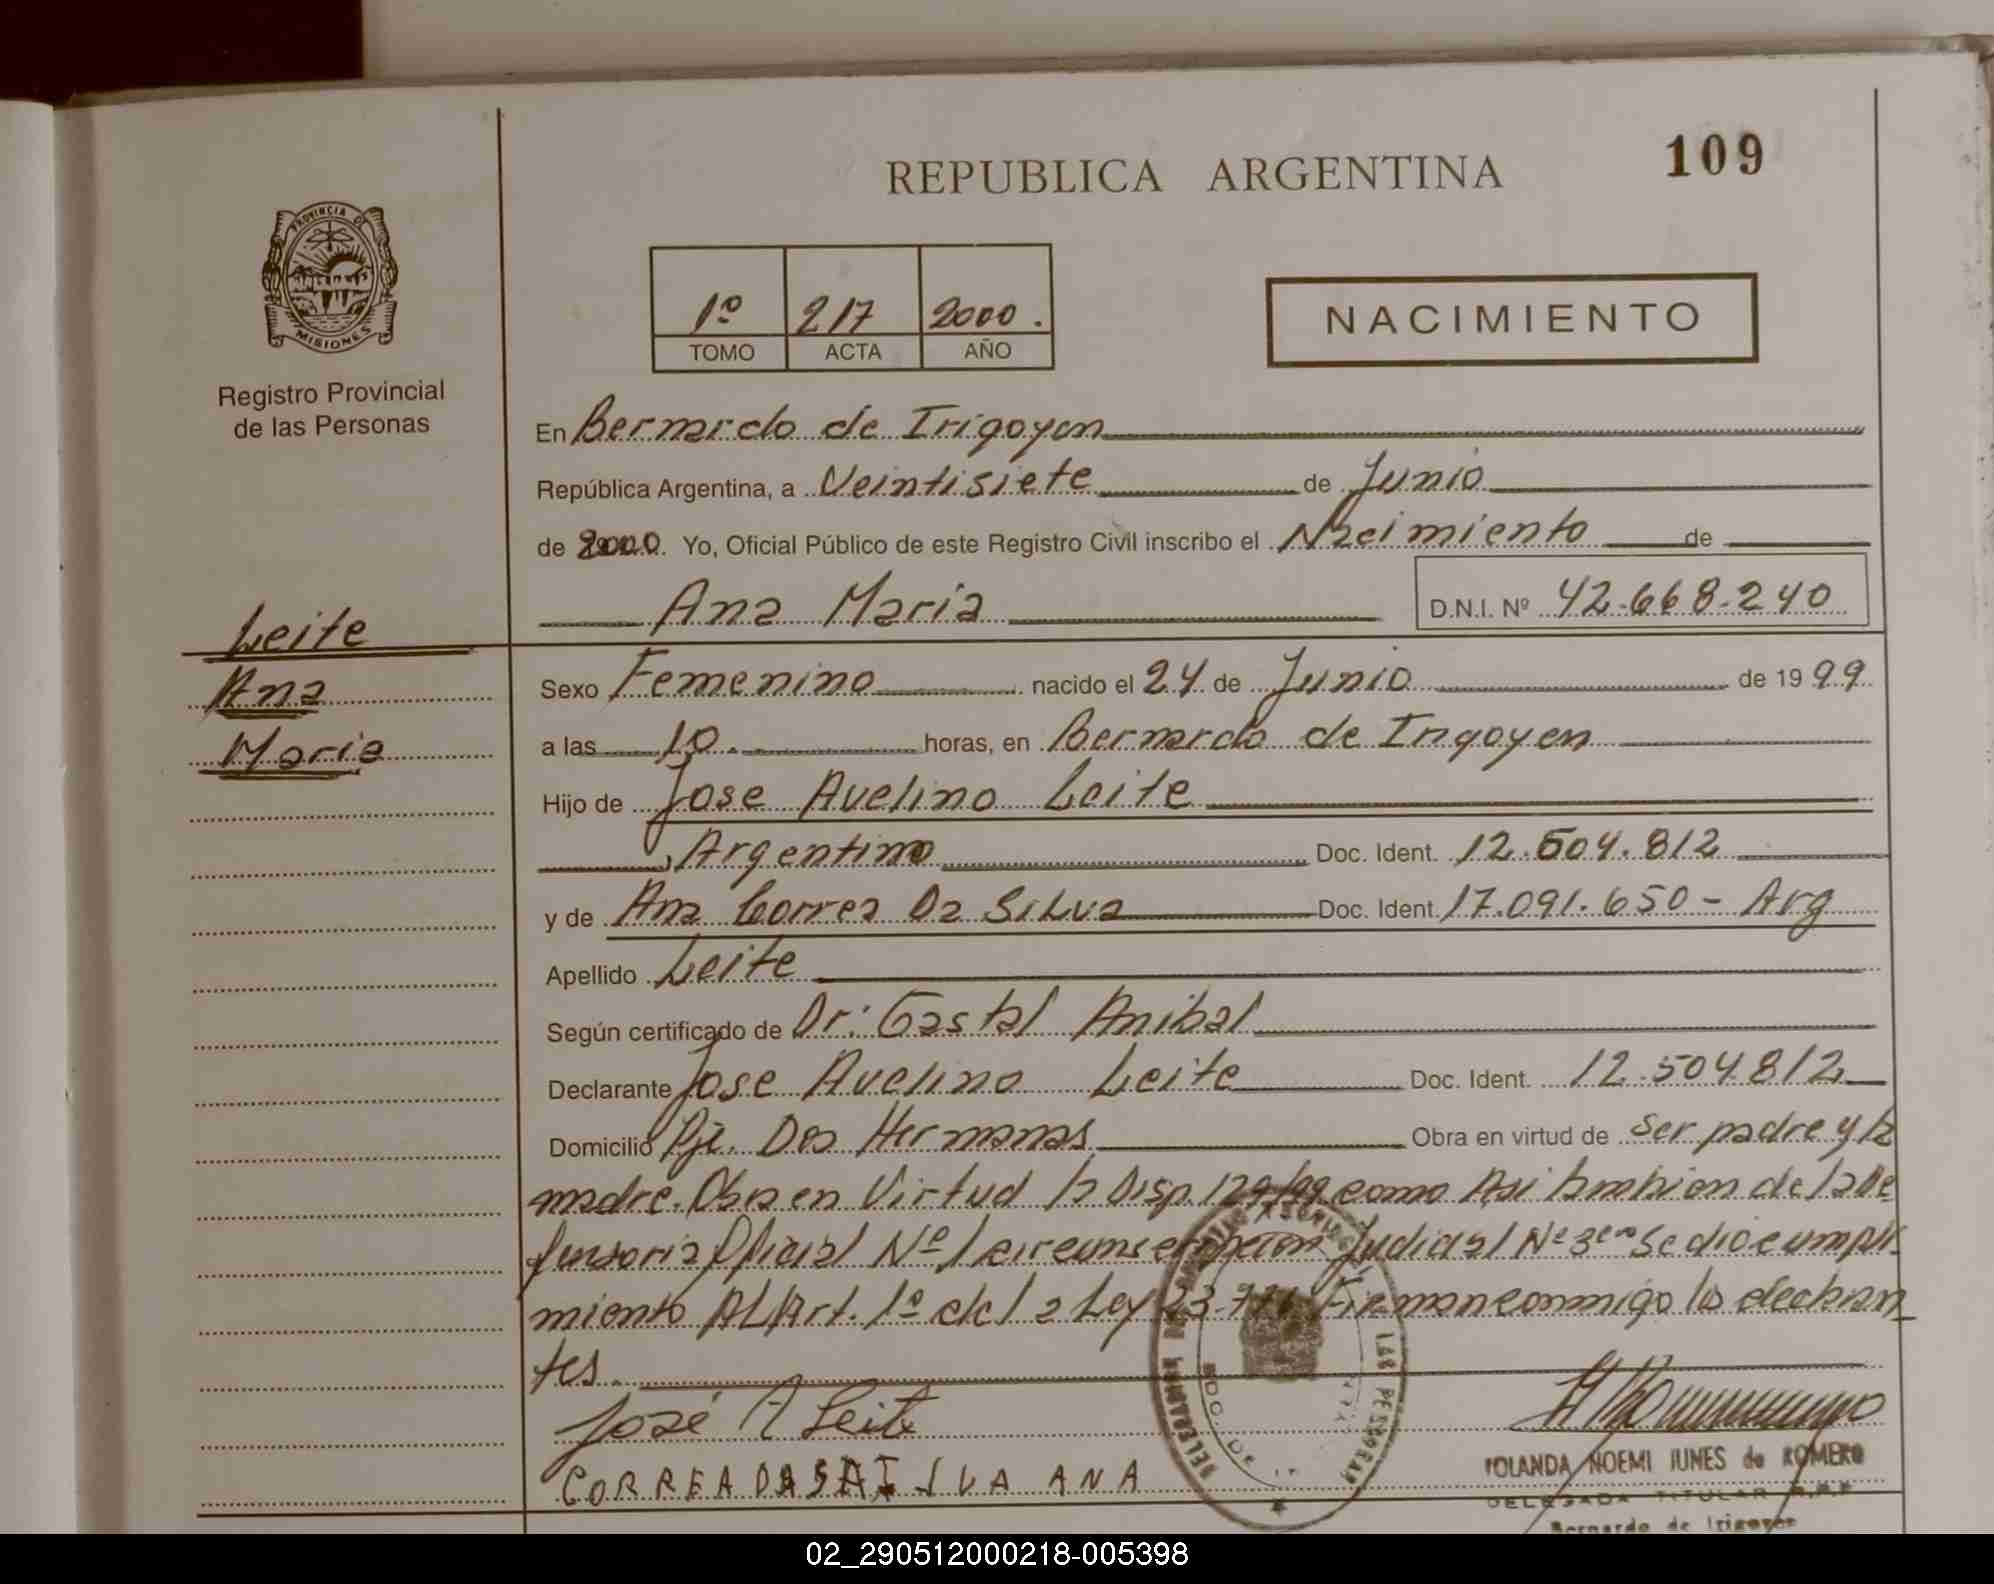 REPUBLICA ARGENTINA
109
PROVINCIA DE
MISIONES
Registro Provincial
de las Personas
1º 217 2000.
TOMO ACTA AÑO
NACIMIENTO
En Bernardo de Irigoyen
República Argentina, a Veintisiete de Junio
de 2000 Yo, Oficial Público de este Registro Civil inscribo el Nacimiento de
Ana Maria D.N.I. Nº 42.668.240
Leite
Ana
Maria
Sexo Femenino nacido el 24 de Junio de 1999
a las 10. horas, en Bernardo de Irigoyen
Hijo de Jose Avelino Leite
, Argentino Doc. Ident. 12.504.812
y de Ana Correa Da Silva Doc. Ident. 17.091.650 - Arg
Apellido Leite
Según certificado de Dr: Gastal Anibal
Declarante Jose Avelino Leite Doc. Ident. 12.504.812
Domicilio Pje. Dos Hermanas Obra en virtud de ser padre y la
madre. Obra en Virtud la Disp. 129/99 como Asi tambien de la De
fensoria Oficial Nº 1 circunscripcion Judicial Nº 3era Se dio cumpli-
miento AL Art. 1º de la Ley Firman conmigo los declaran
tes.
José A Leite
CORREA DA SILVA ANA
YOLANDA NOEMI IUNES de ROMERO
DELEGADA TITULAR R.P.P.
Bernardo de Irigoyen
02_290512000218-005398